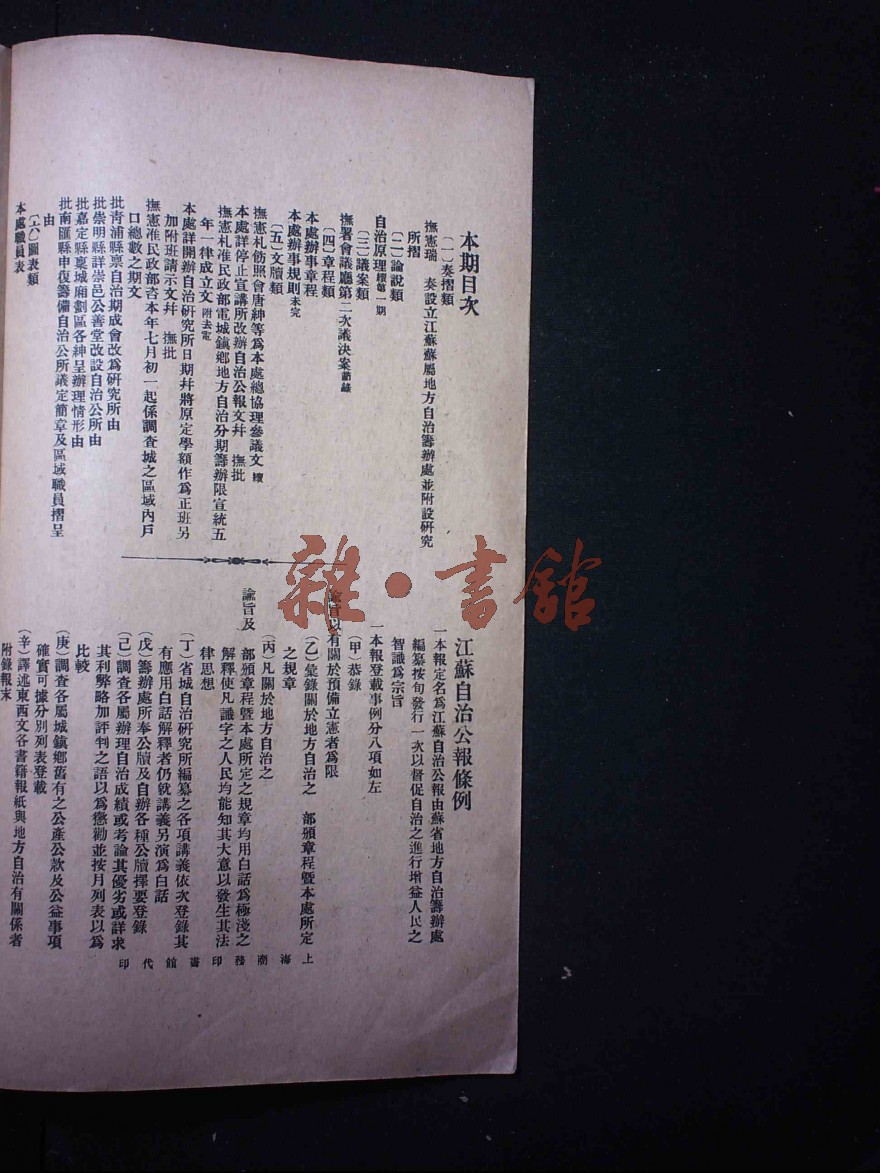 本期目次
（一）奏摺類
撫憲瑞　奏設立江蘇蘇屬地方自治籌辦處並附設研究
所摺
（二）論說類
自治原理續第一期
（三）議案類
撫署會議廳第二次議決案節錄
（四）章程類
本處辦事章程
本處辦事規則未完
（五）文牘類
撫憲札飭照會唐紳等爲本處總協理參議文　續
本處詳停止宣講所改辦自治公報文幷　撫批
撫憲札准民政部電城鎭鄉地方自治分期籌辦限宣統五
年一律成立文　附去電
本處詳開辦自治研究所日期幷將原定學額作爲正班另
加附班請示文幷　撫批
撫憲准民政部咨本年七月初一起係調查城之區域內戶
口總數之期文
批靑浦縣禀自治期成會改爲研究所由
批崇明縣詳崇邑公善堂改設自治公所由
批嘉定縣禀城廂劃區各紳呈辦理情形由
批南匯縣申復籌備自治公所議定簡章及區域職員摺呈
由
（六）圖表類
本處職員表
江蘇自治公報條例
一本報定名爲江蘇自治公報由蘇省地方自治籌辦處
編纂按旬發行一次以督促自治之進行增益人民之
智識爲宗旨
一本報登載事例分八項如左
（甲）恭錄
諭旨以有關於預備立憲者爲限
（乙）彙錄關於地方自治之　部頒章程曁本處所定
之規章
（丙）凡關於地方自治之
諭旨及　部頒章程曁本處所定之規章均用白話爲極淺之
解釋使凡識字之人民均能知其大意以發生其法
律思想
（丁）省城自治研究所編纂之各項講義依次登錄其
有應用白話解釋者仍就講義另演爲白話
（戊）籌辦處所奉公牘及自辦各種公牘擇要登錄
（己）調查各屬辦理自治成績或考論其優劣或詳求
其利弊略加評判之語以爲懲勸並按月列表以爲
比較
（庚）調查各屬城鎭鄉舊有之公產公款及公益事項
確實可據分別列表登載
（辛）譯述東西文各書籍報紙與地方自治有關係者
附錄報末
上海商務印書館代印
雜·書館